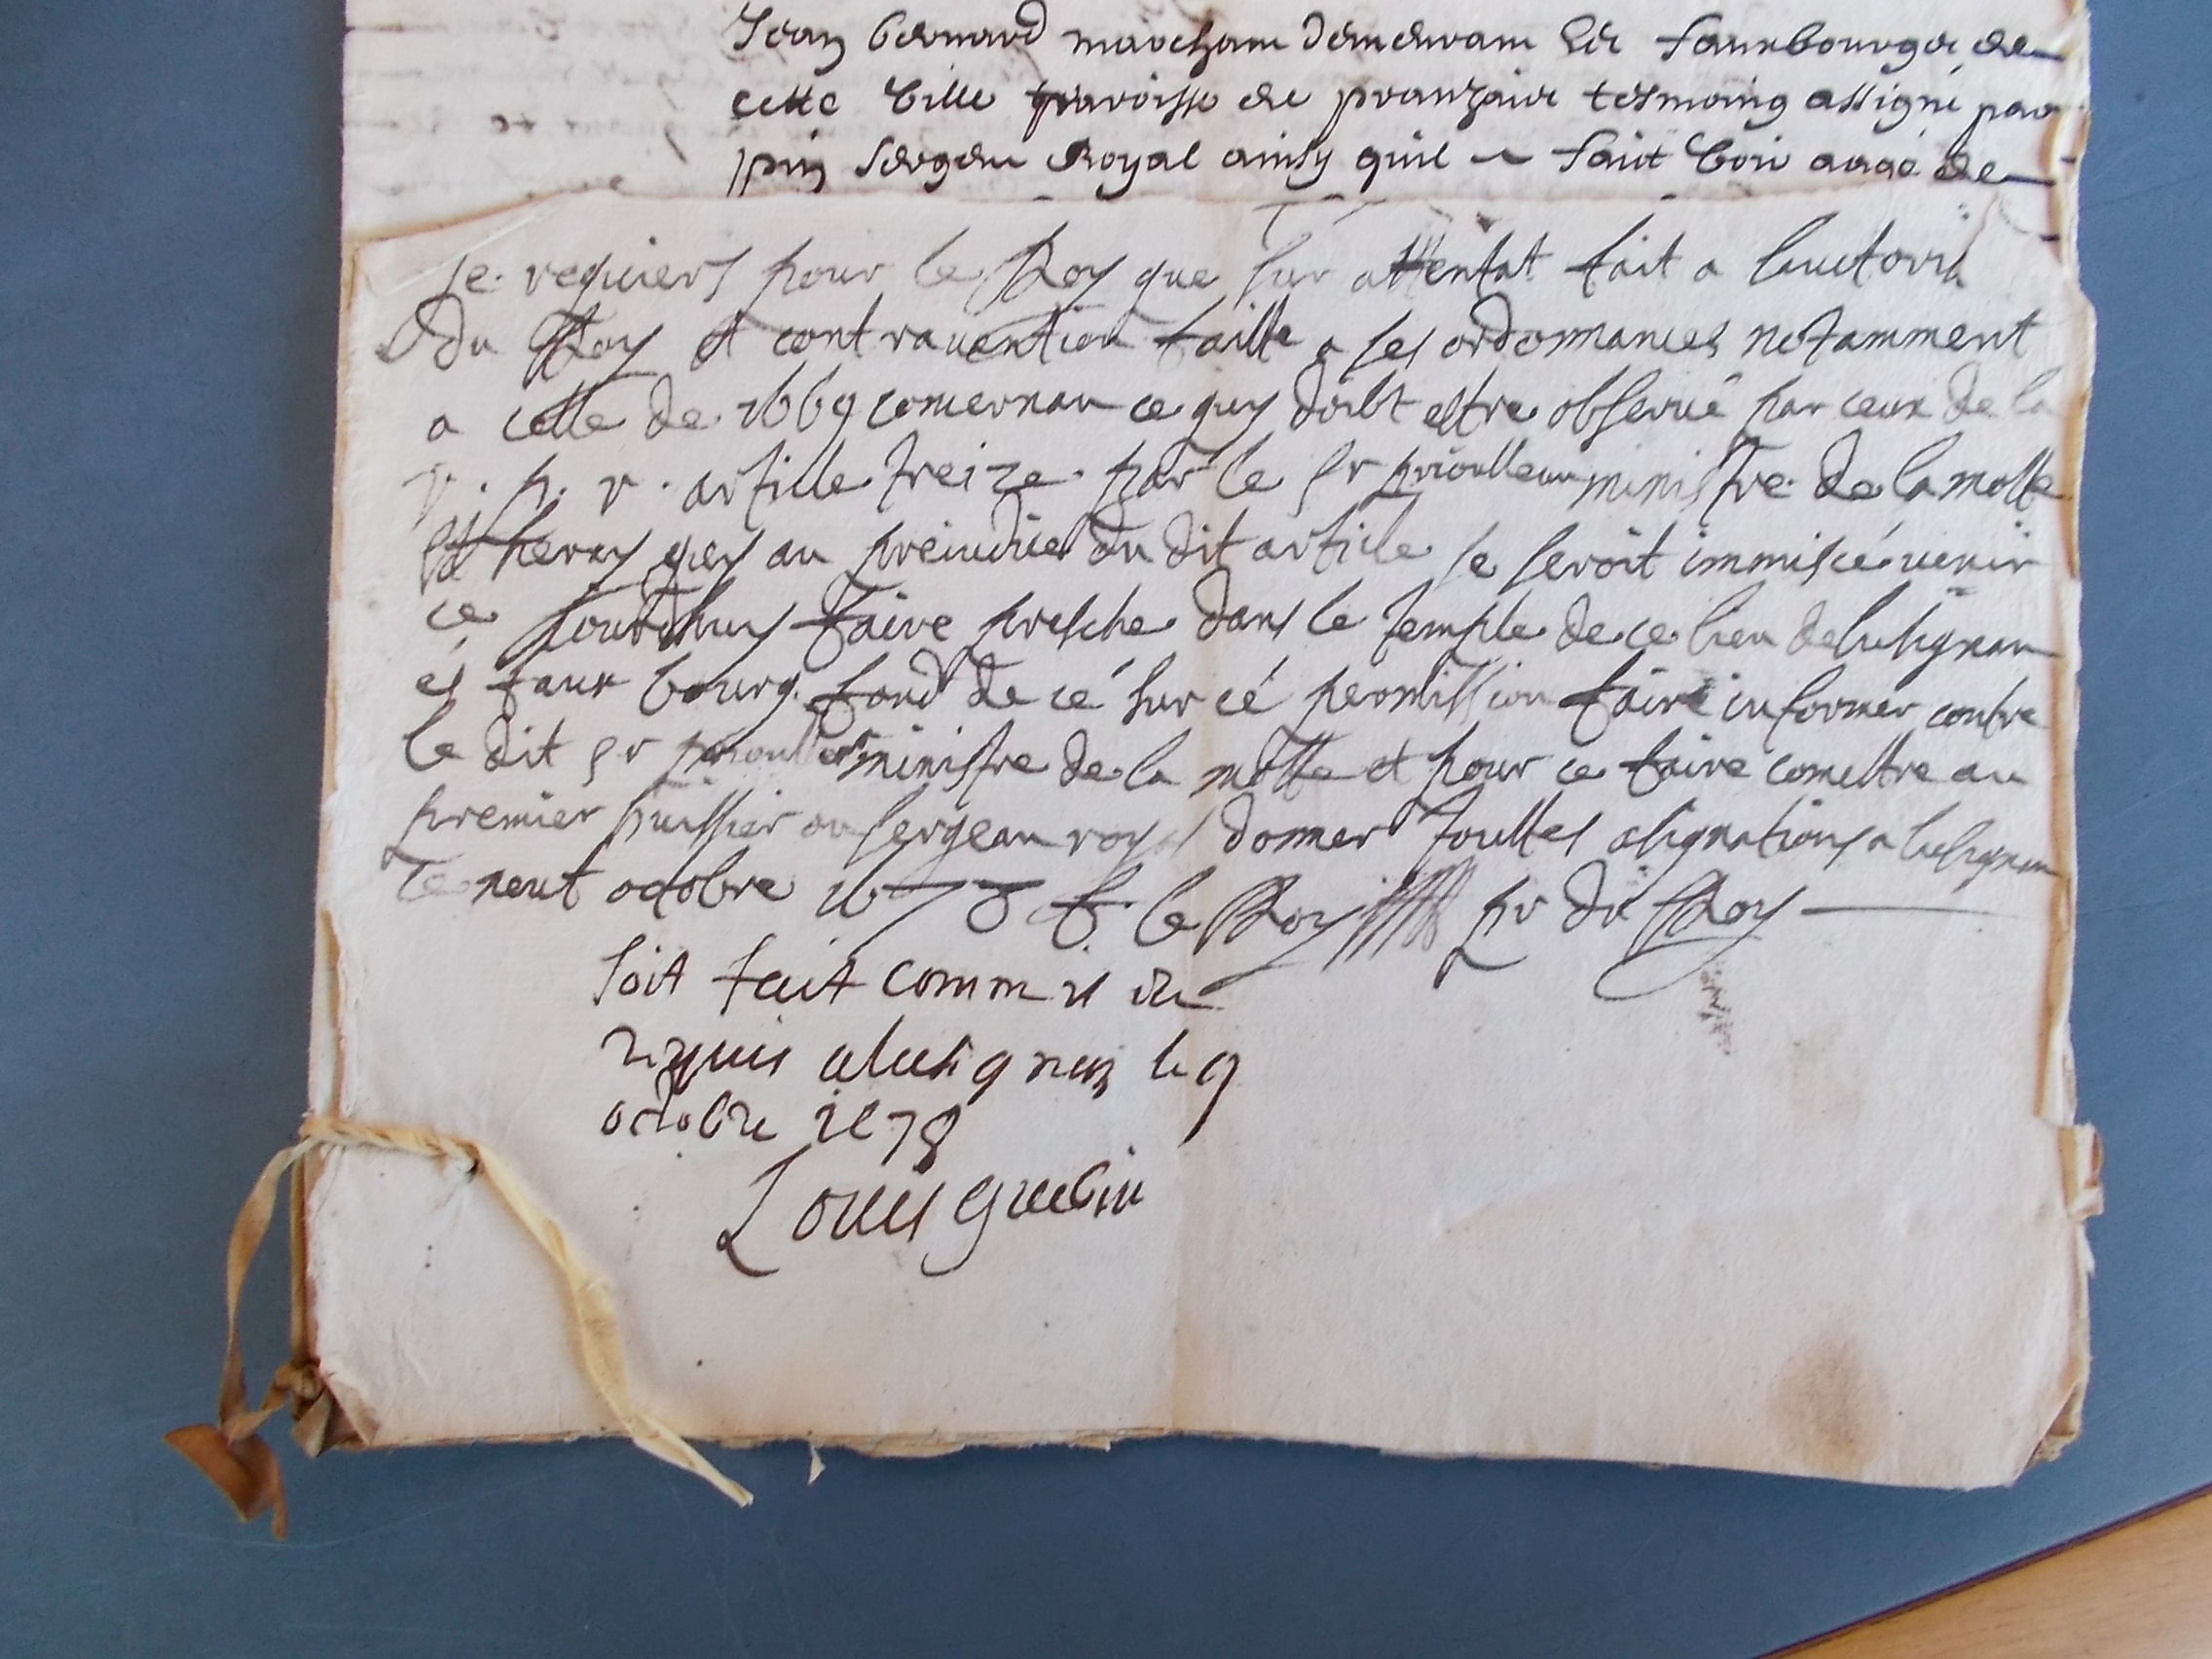 Jean bernard marchant demeurant es fauxbourgs de
cette ville parroisse de pranzaire tesmoing assigné par
pin sergent Royal ainsy quil a fait voir aagé de
je requiers pour le Roy que sur attentat fait a lauctorite
du Roy et contravention faitte a ses ordonnances notamment
a celle de 1669 concernan ce quy doibt estre observé par ceux de la
r. p. r. article treize par le sr prioulleau ministre de la motte
st heray quy au preiudice du dit article se seroit immiscé venir
ce jourdhuy faire presche dans le temple de ce lieu de lusignan
es faux bourg fond de cé sur cé permission faire informer contre
le dit sr prioulleau ministre de la motte et pour ce faire comettre au
premier huissier ou sergean royal donner touttes asignations a lusignan
le neuf octobre 1678 f. le Roy pr du Roy
soit fait comm il est
requis a lusignan le 9
octobre 1678
Louis guebin